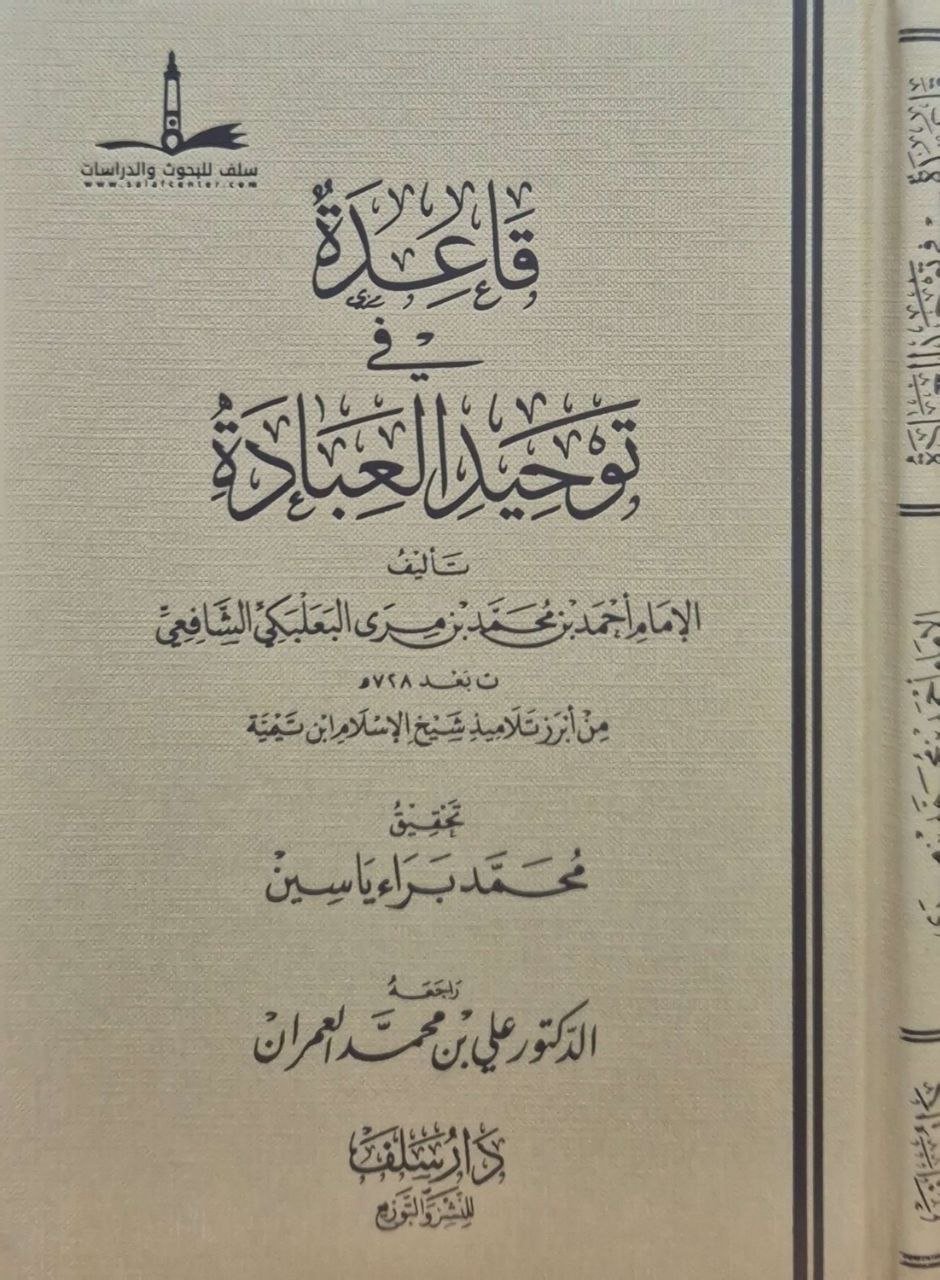 سلف للبحوث والدراسات
www.salafcenter.com
قَاعِدَةٌ
في
تَوْحِيدِ العِبَادَةِ
تَأليفُ
الإِمَامِ أَحْمَد بْنِ مُحَمَّد بْنِ مِرَى البَعْلَبَكِّيِّ الشَّافِعِيِّ
ت بَعْد ٧٢٨ هـ
مِنْ أَبْرَزِ تَلَامِيذِ شَيْخِ الإِسْلَامِ ابْنِ تَيْمِيَّة
تَحْقِيقُ
مُحَمَّد بَرَاء يَاسِين
رَاجَعَهُ
الدكتور علي بن محمد العمران
دَارُ سَلَف
لِلنَّشْرِ وَالتَّوْزِيعِ